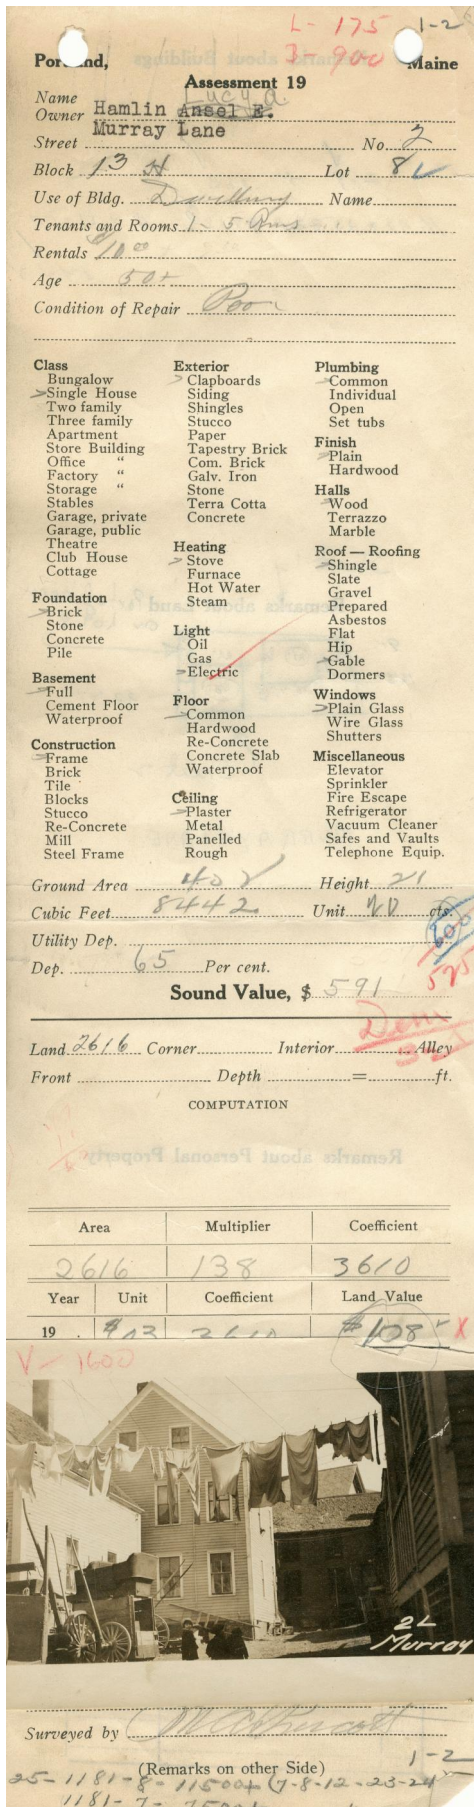 L- 175
1-2
B- 900
Portland, Maine
Assessment 19
Name Lucy A.
Owner Hamlin Ansel E.
Murray Lane
Street No. 2
Block 13 H Lot 8
Use of Bldg. Dwelling Name
Tenants and Rooms 1- 5 Rms
Rentals $10.00
Age 50+
Condition of Repair Poor
Class
Bungalow
Single House
Two family
Three family
Apartment
Store Building
Office "
Factory "
Storage "
Stables
Garage, private
Garage, public
Theatre
Club House
Cottage
Foundation
Brick
Stone
Concrete
Pile
Basement
Full
Cement Floor
Waterproof
Construction
Frame
Brick
Tile
Blocks
Stucco
Re-Concrete
Mill
Steel Frame
Exterior
Clapboards
Siding
Shingles
Stucco
Paper
Tapestry Brick
Com. Brick
Galv. Iron
Stone
Terra Cotta
Concrete
Heating
Stove
Furnace
Hot Water
Steam
Light
Oil
Gas
Electric
Floor
Common
Hardwood
Re-Concrete
Concrete Slab
Waterproof
Ceiling
Plaster
Metal
Panelled
Rough
Plumbing
Common
Individual
Open
Set tubs
Finish
Plain
Hardwood
Halls
Wood
Terrazzo
Marble
Roof — Roofing
Shingle
Slate
Gravel
Prepared
Asbestos
Flat
Hip
Gable
Dormers
Windows
Plain Glass
Wire Glass
Shutters
Miscellaneous
Elevator
Sprinkler
Fire Escape
Refrigerator
Vacuum Cleaner
Safes and Vaults
Telephone Equip.
Ground Area 402 Height 21
Cubic Feet 8442 Unit 20 cts.
600
Utility Dep.
Dep. 65 Per cent.
575
Sound Value, $ 591
Land 2616 Corner Interior Alley
Front Depth = ft.
COMPUTATION
Area Multiplier Coefficient
2616 138 3610
Year Unit Coefficient Land Value
19 . $03 3610 $108 X
V- 1600
2L
Murray
Surveyed by
(Remarks on other Side)
1-2
25-1181-8- 11500+ (7-8-12-23-24
1181-7- 7500+